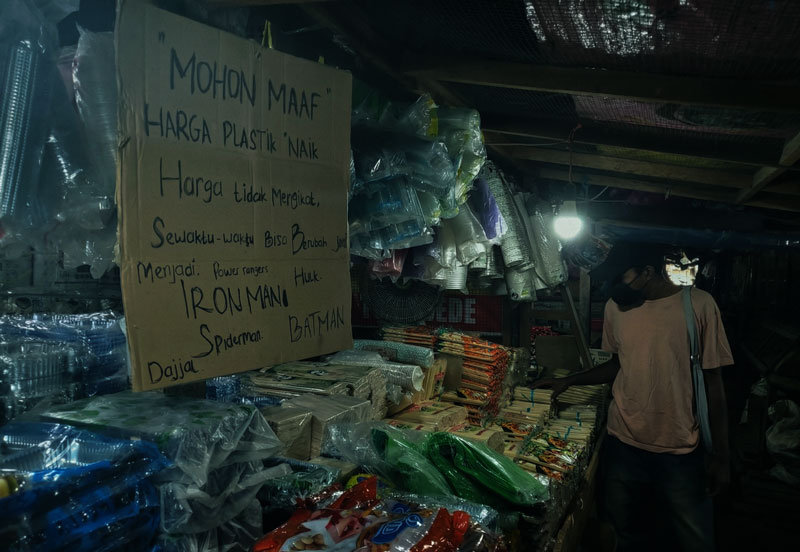 "MOHON MAAF"
HARGA PLASTIK "NAIK
Harga tidak Mengikat,
Sewaktu-waktu BISA Berubah jadi
Menjadi. Power rangers Hulk.
IRONMAN
Spiderman. BATMAN
Dajjal.